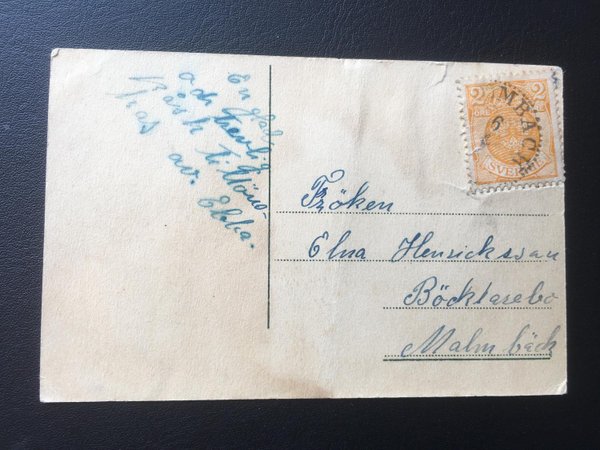 En glad
och trevlig
Påsk tillöns-
kas av. Ebba.
2 2
ÖRE
MBÄCK
6
SVERI
Fröken
Elna Henricksson
Böcklarebo
Malmbäck